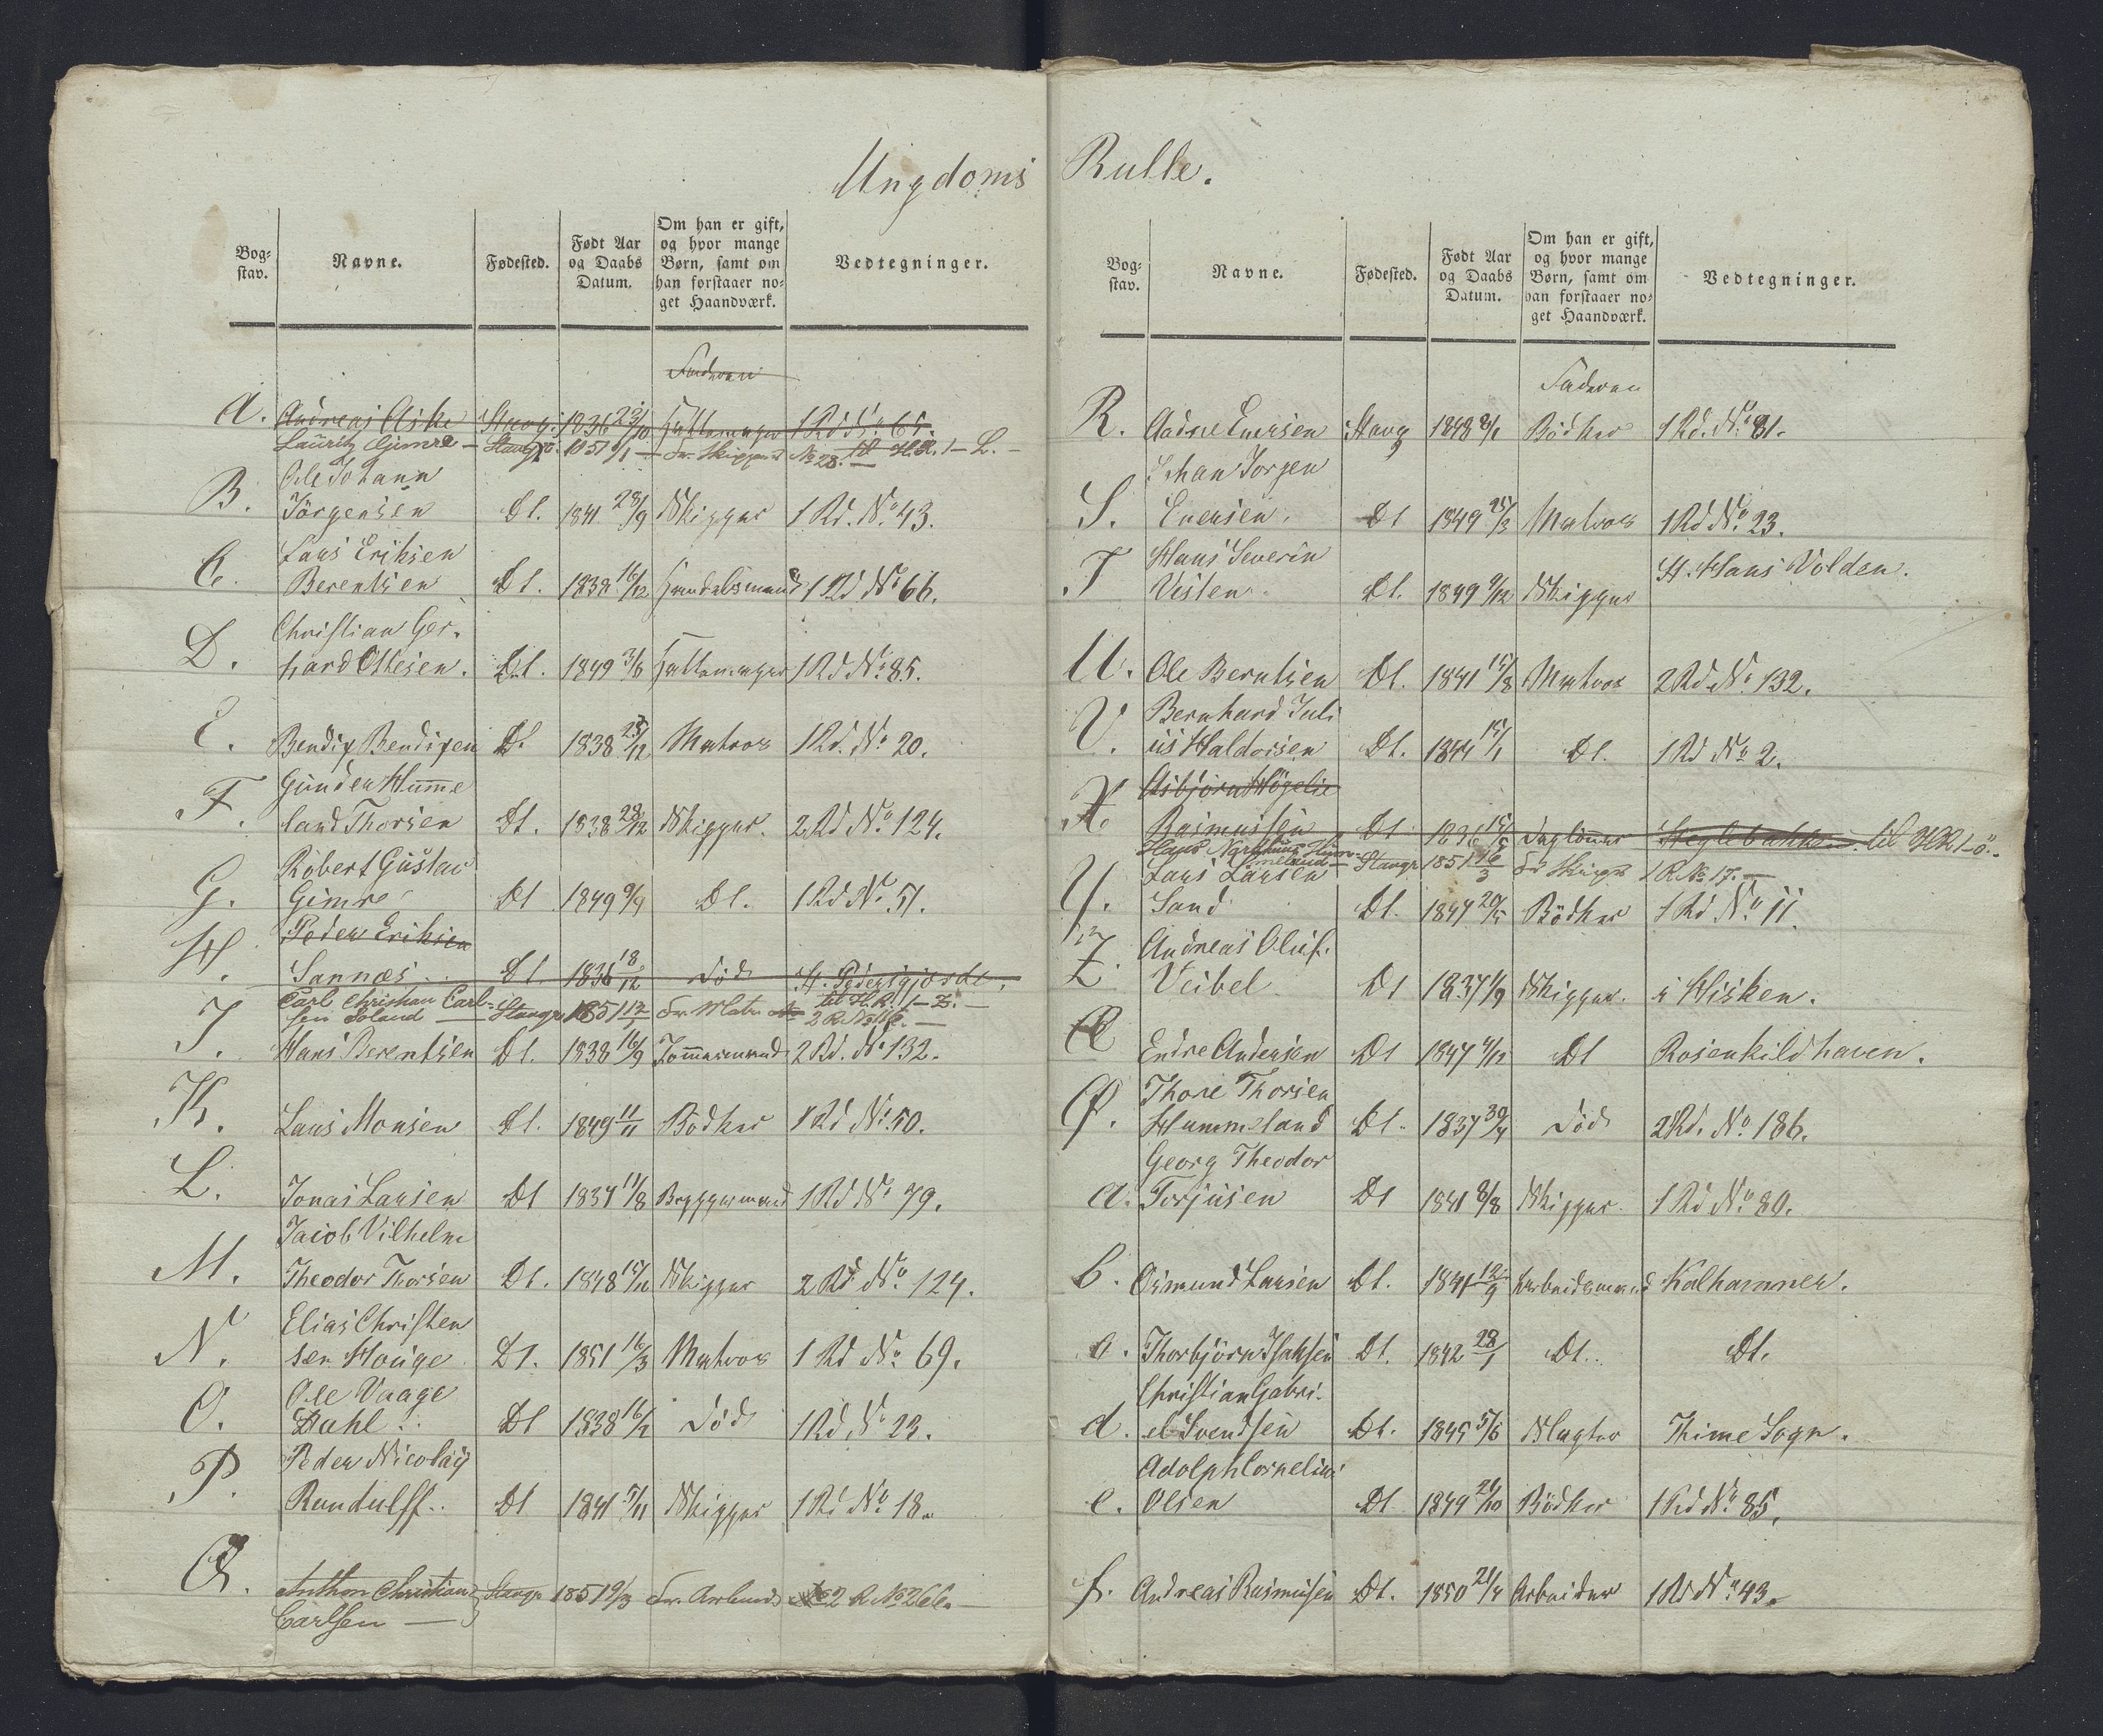 Ungdoms Rulle.
Bog=
stav.
Navne.
Fødested.
Født Aar
og Daabs
Datum.
Om han er gift,
og hvor mange
Børn, samt om
han forstaaer no=
get Haandværk.
Vedtegninger.
Faderen
A. Andreas Aske Stavg: 1836 23/10 Hattemager 1 Rd No 65.
Lauritz Gjemre – Stavgr. 1851 – Fr. Skipper No 28. til H.R. 1 – L. –
Ole Johann
B. Jörgensen Dt. 1841 28/9 Skipper 1 Rd. No 43.
Lars Eriksen
C. Berentsen Dt. 1838 16/12 Handelsmand 1 Rd No 66.
Christian Ger-
D. hard Ottesen. Dt. 1849 3/8 Hattemager 1 Rd No 85.
E. Bendix Bendixen Dt 1838 23/12 Matros 1 Rd. No 20.
Gunder Humme
F. land Thorsen Dt. 1838 28/12 Skipper. 2 Rd No 124.
Robert Gustav
G. Gimre Dt 1849 9/9 Dt. 1 Rd No 51.
H. Peder Eriksen
Sannæs Dt. 1836 18/12 död St. Pedersgjerde.
Carl Christian Carl-
sen Soland – Stavgr 1851 Fr. Matr. til H.R. 1 –
2 R No 116. –
J. Hans Berentsen Dt. 1838 16/9 Tömmermand 2 Rd. No 132.
K. Lars Monsen Dt. 1849 11/11 Bödker 1 Rd No 50.
L. Jonas Larsen Dt 1837 11/8 Bryggemand 1 Rd No 79.
Jacob Vilhelm
M. Theodor Thorsen Dt. 1848 15/11 Skipper 2 Rd No 124.
Elias Christen
N. sen Houge Dt. 1851 16/3 Matros 1 Rd No 69.
Ole Vaage
O. Dahl Dt 1838 16/2 död 1 Rd No 23.
Peder Nicolay
P. Randulff Dt 1841 5/11 Skipper 1 Rd No 18.
Q. Anthon Christian Stavgr 1851 9/3 Fr. Arbmd 2 R No 266. –
Carlsen –
Bog=
stav.
Navne.
Fødested.
Født Aar
og Daabs
Datum.
Om han er gift,
og hvor mange
Børn, samt om
han forstaaer no=
get Haandværk.
Vedtegninger.
Faderen
R. Aadne Enersen Stavg 1848 Bödker 1 Rd. No 81.
Johan Jorgen
S. Enersen. Dt 1849 25/3 Matros 1 Rd No 23.
Hans Severin
T Visten Dt. 1849 9/12 Skipper St. Hans Volden.
U. Ole Berntsen Dt. 1841 15/8 Matros 2 Rd No 132.
Bernhard Juli
V. us Haldorsen Dt. 1844 15/1 Dt. 1 Rd No 2.
Asbjörn Högelie
X. Rasmussen Dt. 1836 Daglönner Steglebakken til H.R. 1 – ö. –
Hans Hum-
meland – Stavgr 1851 16/3 Fr Skipp 1 R No 17. –
Lars Larsen
Y. Sand Dt. 1847 20/5 Bödker 1 Rd No 11.
Andreas Oluf.
Z. Veibel Dt 1837 1/9 Skipper. i Hisken.
Æ Endre Andersen Dt 1847 4/12 Dt Rosenkildhaven.
Thore Thorsen
Ø. Hummeland Dt. 1837 30/4 död 2 Rd. No 186.
Georg Theodor
a. Torjusen Dt 1841 8/8 Skipper. 1 Rd No 80.
b. Osmund Larsen Dt. 1841 12/9 Arbeidsmand Kalhammer.
c. Thorbjörn Isaksen Dt. 1842 28/1 Dt. Dt.
Christian Gabri-
d. el Svendsen Dt. 1845 5/6 Slagter Thime Sogn.
Adolph Cornelius
e. Olsen Dt 1849 21/10 Bödker 1 Rd No 85.
f. Andreas Rasmusen Dt. 1850 21/4 Arbeider 1 Rd No 43.